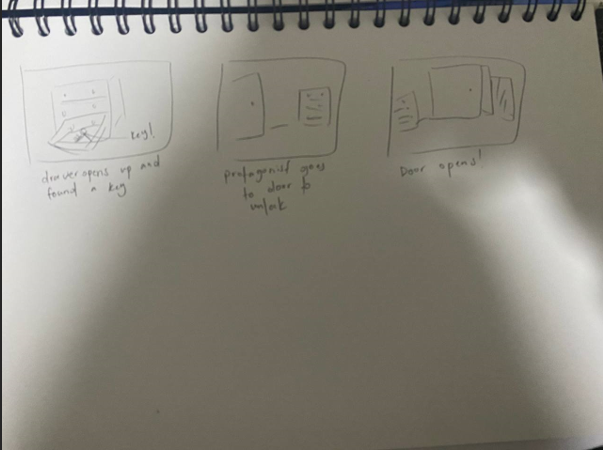 key!
drawer opens up and
found a key
protagonist goes
to door to
unlock
Door opens!